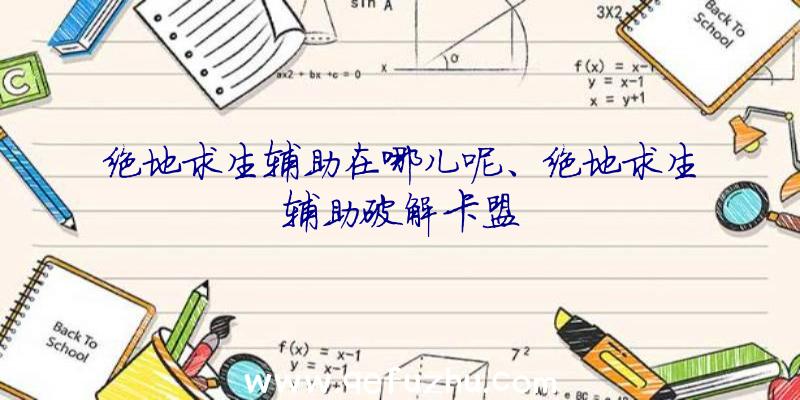 sin A
3X2
Back To
School
C
ax2 + bx + c = 0
x
α
f(x) = x-1
y = x-1
x = y+1
绝地求生辅助在哪儿呢、绝地求生
辅助破解卡盟
Back To
School
f(x) = x-1
y = x-1
7²